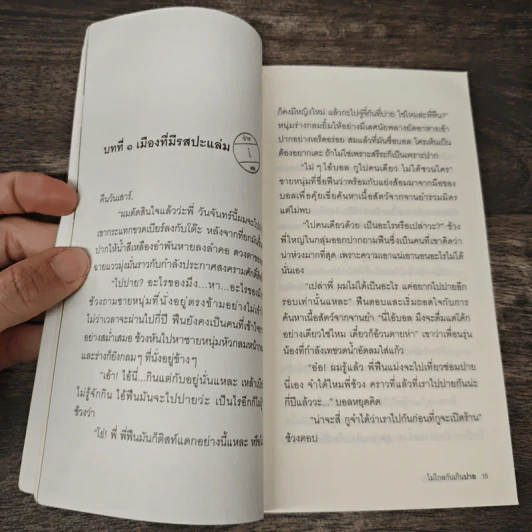 บทที่ ๑ เมืองที่มีรสปะแล่ม
คืนวันเสาร์.
"ผมตัดสินใจแล้วว่ะพี่ วันจันทร์นี้ผมจะไป
เขากระแทกขวดเบียร์ลงกับโต๊ะ หลังจากที่ยก
ปากให้น้ำสีเหลืองอำพันหายลงลำคอ ดวงตา
อายแววมุ่งมั่นราวกับกำลังประกาศสงครามศักดิ์
"ไปปาย? อะไรของมึง...หา...อะไรของ
ช้วงถามชายหนุ่มที่นั่งอยู่ตรงข้ามอย่างไม่
ไม่ว่าเวลาจะผ่านไปกี่ปี ฟืนยังคงเป็นคนที่เข้าใจ
อย่างสม่ำเสมอ ช้วงหันไปหาชายหนุ่มหัวกลม
และร่างก็ยังกลมๆ ที่นั่งอยู่ข้างๆ
"เอ้า! ไอ้นี่...กินแต่กับอยู่นั่นแหละ เหล้า
ไม่รู้จักกิน ไอ้ฟืนมันจะไปปายว่ะ เป็นไรอีกก็ไม่
ช้วงว่า
"โธ่! พี่ พี่ฟืนมันก็ติสท์แตกอย่างนี้แหละ
ก็คงมีหญิงใหม่ แล้วกะไปจู๋จี๋กันที่ปาย ใช่ไหมล่ะพี่ฟืน?"
หนุ่มร่างกลมยิ้มให้อย่างมีเลศนัยพลางยัดอาหารเข้า
ปากอย่างเอร็ดอร่อย สมแล้วที่มันชื่อบอล ใครเห็นเป็น
ต้องอยากเตะ ถ้าไม่ใช่เพราะสรีระก็เป็นเพราะปาก
"ไม่ๆ ไอ้บอล กูไปคนเดียว ไม่ได้ชวนใคร"
ชายหนุ่มที่ชื่อฟืนว่าพร้อมกับแย่งส้อมมาจากมือของ
บอลเพื่อคุ้ยเขี่ยค้นหาเนื้อสัตว์จากจานยำรวมมิตร
แต่ไม่พบ
"ไปคนเดียวด้วย เป็นอะไรหรือเปล่าวะ?" ช้วง
พี่ใหญ่ในกลุ่มออกปากถามฟืนซึ่งเป็นคนที่เขาคิดว่า
น่าห่วงมากที่สุด เพราะความเอาแน่เอานอนอะไรไม่ได้
นั่นเอง
"เปล่าพี่ ผมไม่ได้เป็นอะไร แค่อยากไปปายอีก
รอบเท่านั้นแหละ" ฟืนตอบและเริ่มถอดใจกับการ
ค้นหาเนื้อสัตว์จากจานยำ "นี่ไอ้บอล มึงจะดื่มแต่โค้ก
อย่างเดียวใช่ไหม เดี๋ยวก็อ้วนตายห่า" เขาว่าเพื่อนรุ่น
น้องที่กำลังเทขวดน้ำอัดลมใส่แก้ว
"อ๋อ! ผมรู้แล้ว พี่ฟืนแม่งจะไปเที่ยวซ่อมปาย
นี่เอง จำได้ไหมพี่ช้วง คราวที่แล้วที่เราไปปายกันน่ะ
กี่ปีแล้ววะ..." บอลหยุดคิด
"น่าจะสี่ กูจำได้ว่าเราไปกันก่อนที่กูจะเปิดร้าน"
ช้วงตอบ
ไม่ไกลกันเกินปาย 15